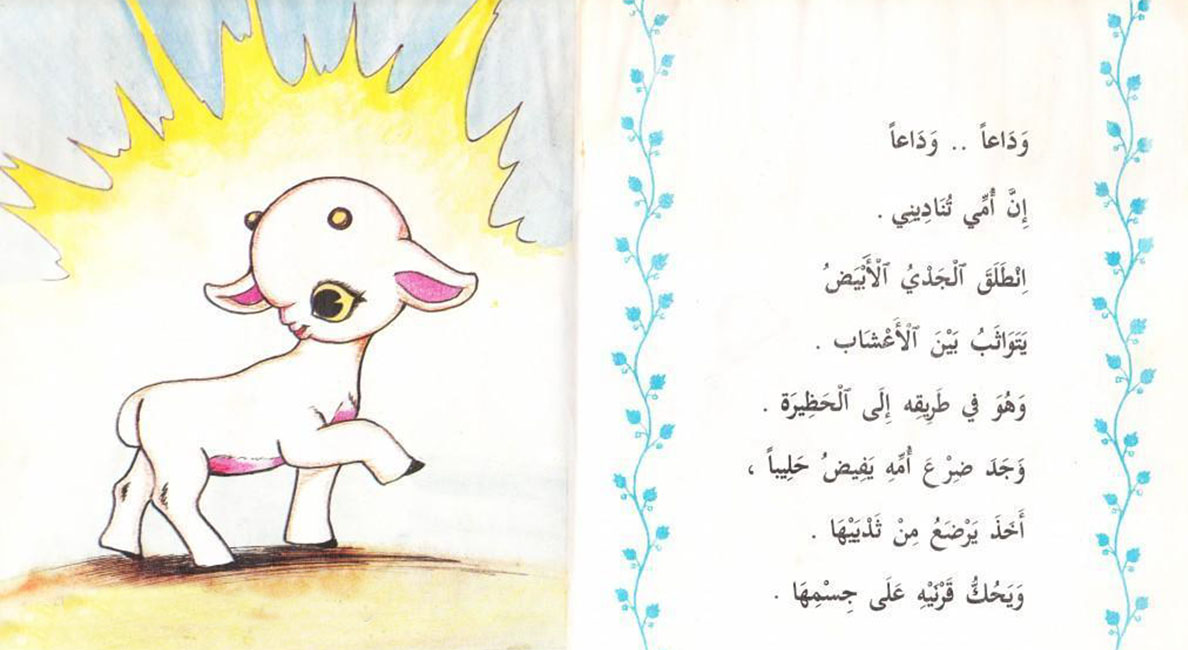 وَدَاعاً .. وَدَاعاً
إِنَّ أُمِّي تُنَادِينِي .
اِنْطَلَقَ ٱلْجَدْيُ ٱلْأَبْيَضُ
يَتَوَاثَبُ بَيْنَ ٱلْأَعْشَاب .
وَهُوَ في طَرِيقِه إِلَى ٱلْحَظِيرَة .
وَجَدَ ضِرْعَ أُمِّهِ يَفِيضُ حَلِيباً ،
أَخَذَ يَرْضَعُ مِنْ ثَدْيَيْهَا .
وَيَحُكُّ قَرْنَيْهِ عَلَى جِسْمِهَا .